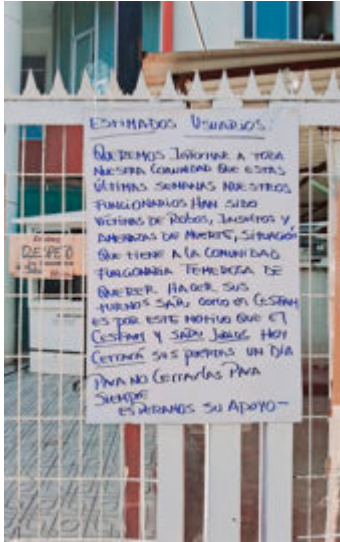 ESTIMADOS USUARIOS:
QUEREMOS INFORMAR A TODA
NUESTRA COMUNIDAD QUE ESTAS
ÚLTIMAS SEMANAS NUESTROS
FUNCIONARIOS HAN SIDO
VICTIMAS DE ROBOS, INSULTOS Y
AMENAZAS DE MUERTE, SITUACIÓN
QUE TIENE A LA COMUNIDAD
FUNCIONARIA TEMEROSA DE
QUERER HACER SUS
TURNOS SAPU COMO EN CESFAM
ES POR ESTE MOTIVO QUE EL
CESFAM Y SAPU HOY
CERRARÁ SUS PUERTAS UN DÍA
PARA NO CERRARLAS PARA
SIEMPRE
ESPERAMOS SU APOYO-